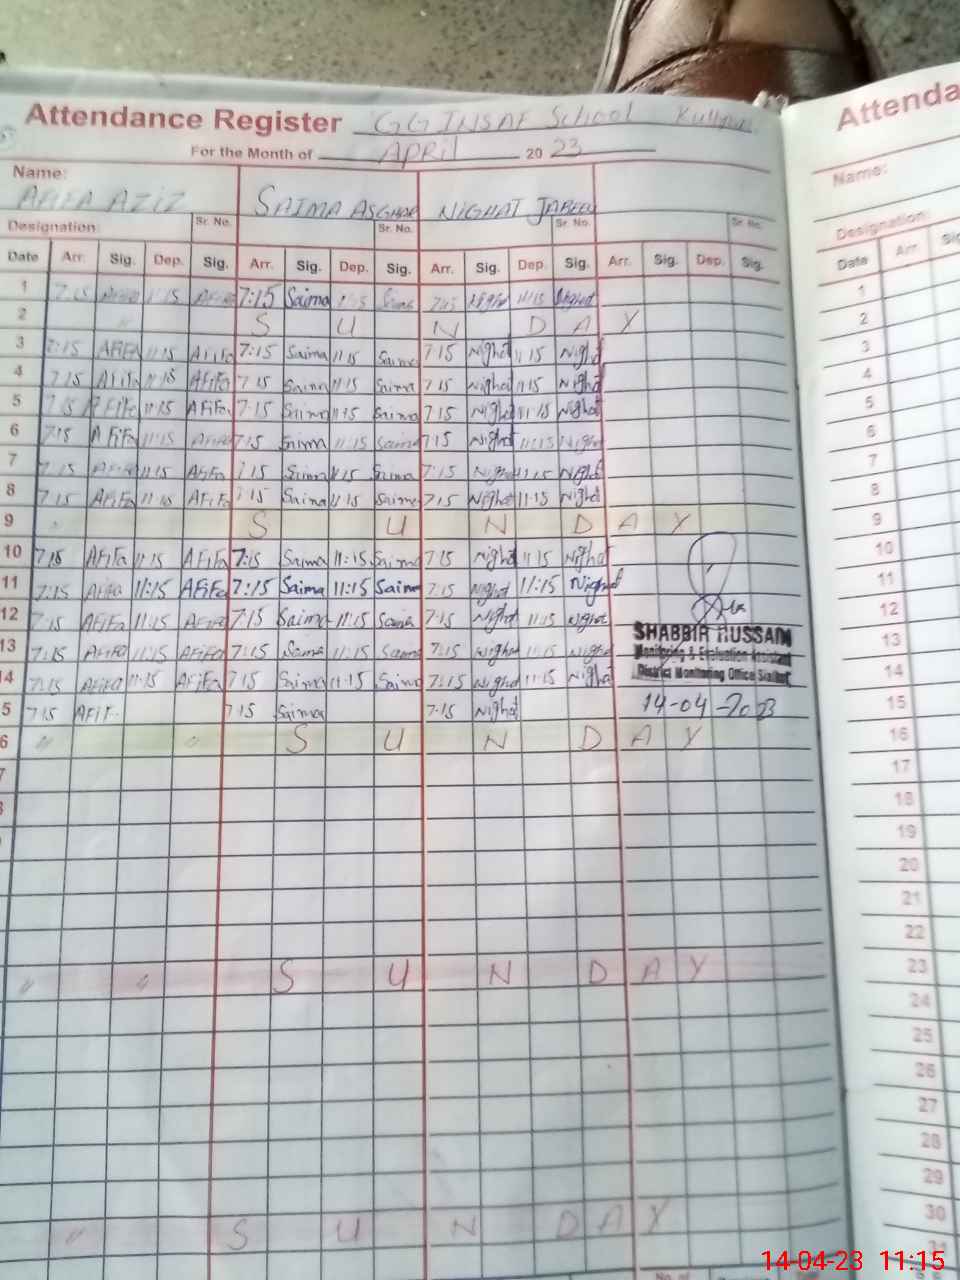 Attendance Register GG INSAF School
Attenda
For the Month of APRIL 20 23
Name:
Name:
AFIFA AZIZ SAIMA ASGHAR NIGHAT JABEEN
Designation: Sr. No. Sr. No. Sr. No. Sr. No.
Designation:
Date Arr. Sig. Dep. Sig. Arr. Sig. Dep. Sig. Arr. Sig. Dep. Sig. Arr. Sig. Dep. Sig.
Date Arr.
1 7:15 Afifa 11:15 Afifa 7:15 Saima 11:15 Saima 7:15 Nighat 11:15 Nighat
2 " S U N D A Y
3 7:15 AFIFA 11:15 AFiFa 7:15 Saima 11:15 Saima 7:15 Nighat 11:15 Nighat
4 7:15 AFiFa 11:15 AFiFa 7:15 Saima 11:15 Saima 7:15 Nighat 11:15 Nighat
5 7:15 AFiFa 11:15 AFiFa 7:15 Saima 11:15 Saima 7:15 Nighat 11:15 Nighat
6 7:15 AFiFa 11:15 AFiFa 7:15 Saima 11:15 Saima 7:15 Nighat 11:15 Nighat
7 7:15 AFiFa 11:15 AFiFa 7:15 Saima 11:15 Saima 7:15 Nighat 11:15 Nighat
8 7:15 AFiFa 11:15 AFiFa 7:15 Saima 11:15 Saima 7:15 Nighat 11:15 Nighat
9 " S U N D A Y
10 7:15 AFiFa 11:15 AFiFa 7:15 Saima 11:15 Saima 7:15 Nighat 11:15 Nighat
11 7:15 AFiFa 11:15 AFiFa 7:15 Saima 11:15 Saima 7:15 Nighat 11:15 Nighat
12 7:15 AFiFa 11:15 AFiFa 7:15 Saima 11:15 Saima 7:15 Nighat 11:15 Nighat
13 7:15 AFiFa 11:15 AFiFa 7:15 Saima 11:15 Saima 7:15 Nighat 11:15 Nighat
14 7:15 AFiFa 11:15 AFiFa 7:15 Saima 11:15 Saima 7:15 Nighat 11:15 Nighat
5 7:15 AFiF 7:15 Saima 7:15 Nighat
SHABBIR HUSSAIN
Monitoring & Evaluation Assistant
District Monitoring Office Sialkot
14-04-2023
6 " " S U N D A Y
7
8
" " S U N D A Y
" S U N D A Y
1
2
3
4
5
6
7
8
9
10
11
12
13
14
15
16
17
18
19
20
21
22
23
24
25
26
27
28
29
30
31
14-04-23 11:15